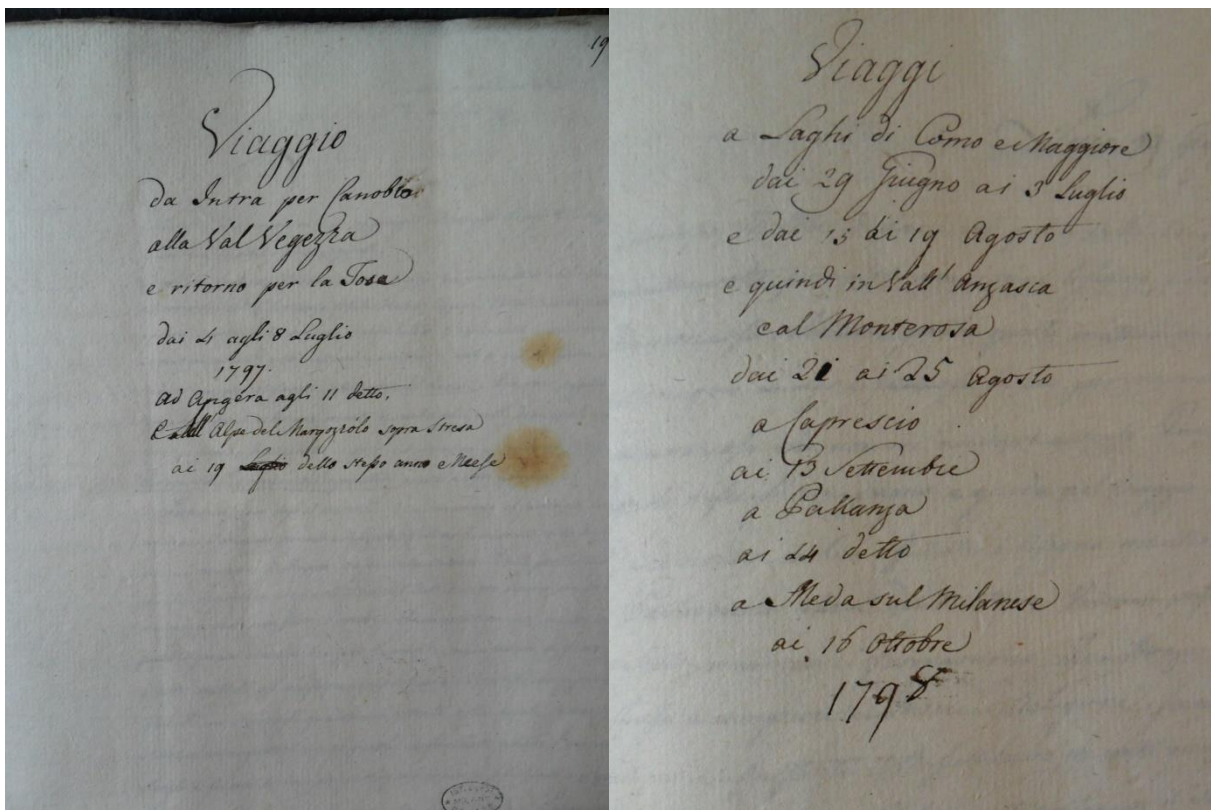 19
Viaggio
da Intra per Canobio
alla Val Vegezza
e ritorno per la Tosa
dai 4 agli 8 Luglio
1797.
Ad Angera agli 11 detto.
E all' Alpe del Margozzolo sopra Stresa
ai 19 Luglio dello stesso anno e Mese
Viaggi
a Laghi di Como e Maggiore
dai 29 Giugno ai 3 Luglio
e dai 15 ai 19 Agosto
e quindi in Vall' Anzasca
e al Monterosa
dai 21 ai 25 Agosto
a Caprescio
ai 13 Settembre
a Pallanza
ai 24 detto
a Meda sul Milanese
ai 16 Ottobre
1798